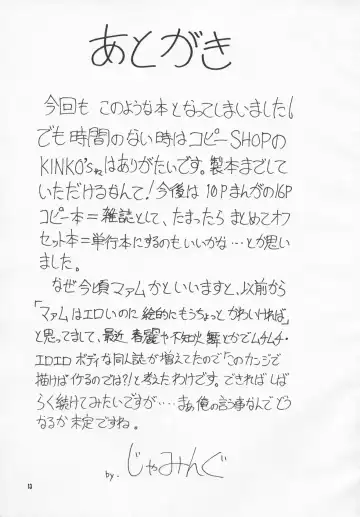 あとがき
今回も このような本となってしまいました。
でも時間のない時はコピーSHOPの
KINKO'sはありがたいです。製本までして
いただけるなんて!今後は10Pまんがの16P
コピー本=雑誌として、たまったら まとめてオフ
セット本=単行本にするのもいいかな…とか思い
ました。
なぜ今頃マァムかといいますと、以前から
「マァムはエロいのに絵的にもうちょっとかわいければ」
と思ってまして、最近 春麗や不知火舞とかでムチムチ・
エロエロ ボディな同人誌が増えてたので「このカンジで
描けばイケるのでは?」と考えたわけです。できればしば
らく続けてみたいですが……まぁ俺の言う事なんでどう
なるか未定ですね。
by. じゃみんぐ
13